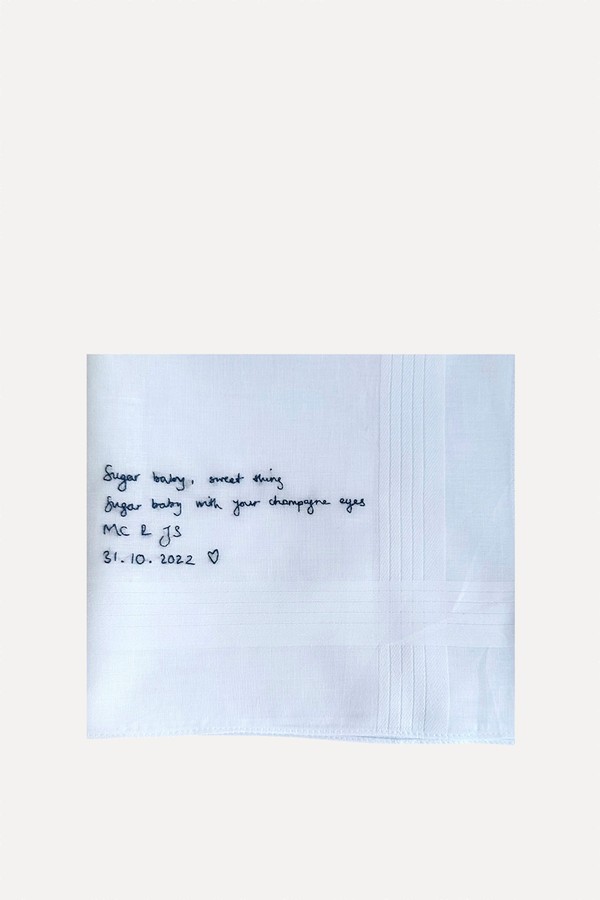 Sugar baby, sweet thing
Sugar baby with your champagne eyes
MC & JS
31.10.2022 ♡